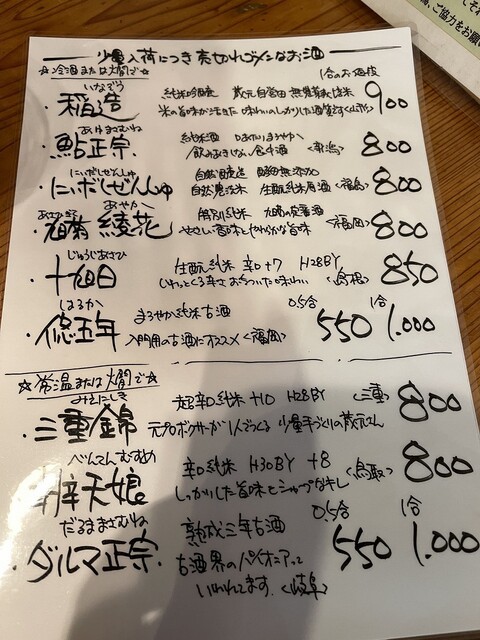 少量入荷につき売切れゴメンなお酒
☆冷酒または燗で☆
1合のお値段
いなぞう
・稲造 純米吟醸 蔵元自営田 無農薬米 900
米の旨味が活きた 味わいのしっかりした酒
あゆまさむね
・鮎正宗 純米酒 口あたりまろやか 800
飲みあきしない食中酒 <新潟>
にいだしぜんしゅ
・にいだしぜんしゅ 自然派酒造 無添加 800
自然栽培米 生酛純米原酒 <福島>
あさひぎく あやか
・旭菊 綾花 特別純米 800
やさしい旨味とやわらかな味 <福岡>
じゅうじあさひ
・十旭日 生酛純米 辛口+7 H28BY 850
<島根>
はるか
・悠五年 まろやか純米古酒 0.5合 550 1合 1.000
入門用の古酒にオススメ <福岡>
☆常温または燗で☆
みえにしき
・三重錦 超辛口純米 +10 H28BY <三重> 800
元プロボクサーが1人でつくる 少量手づくりの蔵元さん
べんてんむすめ
・辨天娘 辛口純米 H30BY +8 <鳥取> 800
しっかりした旨味とシャープなキレ
だるままさむね
・ダルマ正宗 熟成三年古酒 0.5合 550 1合 1.000
古酒界のパイオニアって
いわれてます. <岐阜>
ご協力をお願い